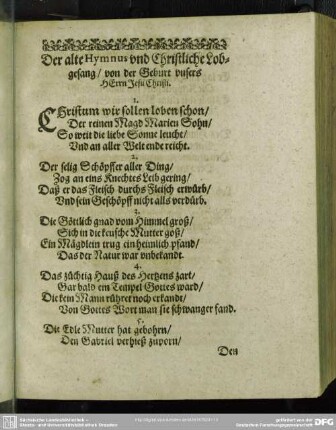 Der alte Hymnus vnd Christliche Lob-
gesang / von der Geburt vnsers
HErrn Jesu Christi.
1.
CHristum wir sollen loben schon /
Der reinen Magd Marien Sohn /
So weit die liebe Sonne leucht /
Vnd an aller Welt ende reicht.
2.
Der selig Schöpffer aller Ding /
Zog an eins Knechtes Leib gering /
Daß er das Fleisch durchs Fleisch erwürb /
Vnd sein Geschöpff nicht alls verdürb.
3.
Die Göttlich gnad vom Himmel groß /
Sich in die keusche Mutter goß /
Ein Mägdlein trug ein heimlich pfand /
Das der Natur war vnbekandt.
4.
Das züchtig Hauß des Hertzens zart /
Gar bald ein Tempel Gottes ward /
Die kein Mann rühret noch erkandt /
Von Gottes Wort man sie schwanger fand.
5.
Die Edle Mutter hat gebohrn /
Den Gabriel verhieß zuvorn /
Den
Sächsische Landesbibliothek -
Staats- und Universitätsbibliothek Dresden
gefördert von der
Deutschen Forschungsgemeinschaft
DFG